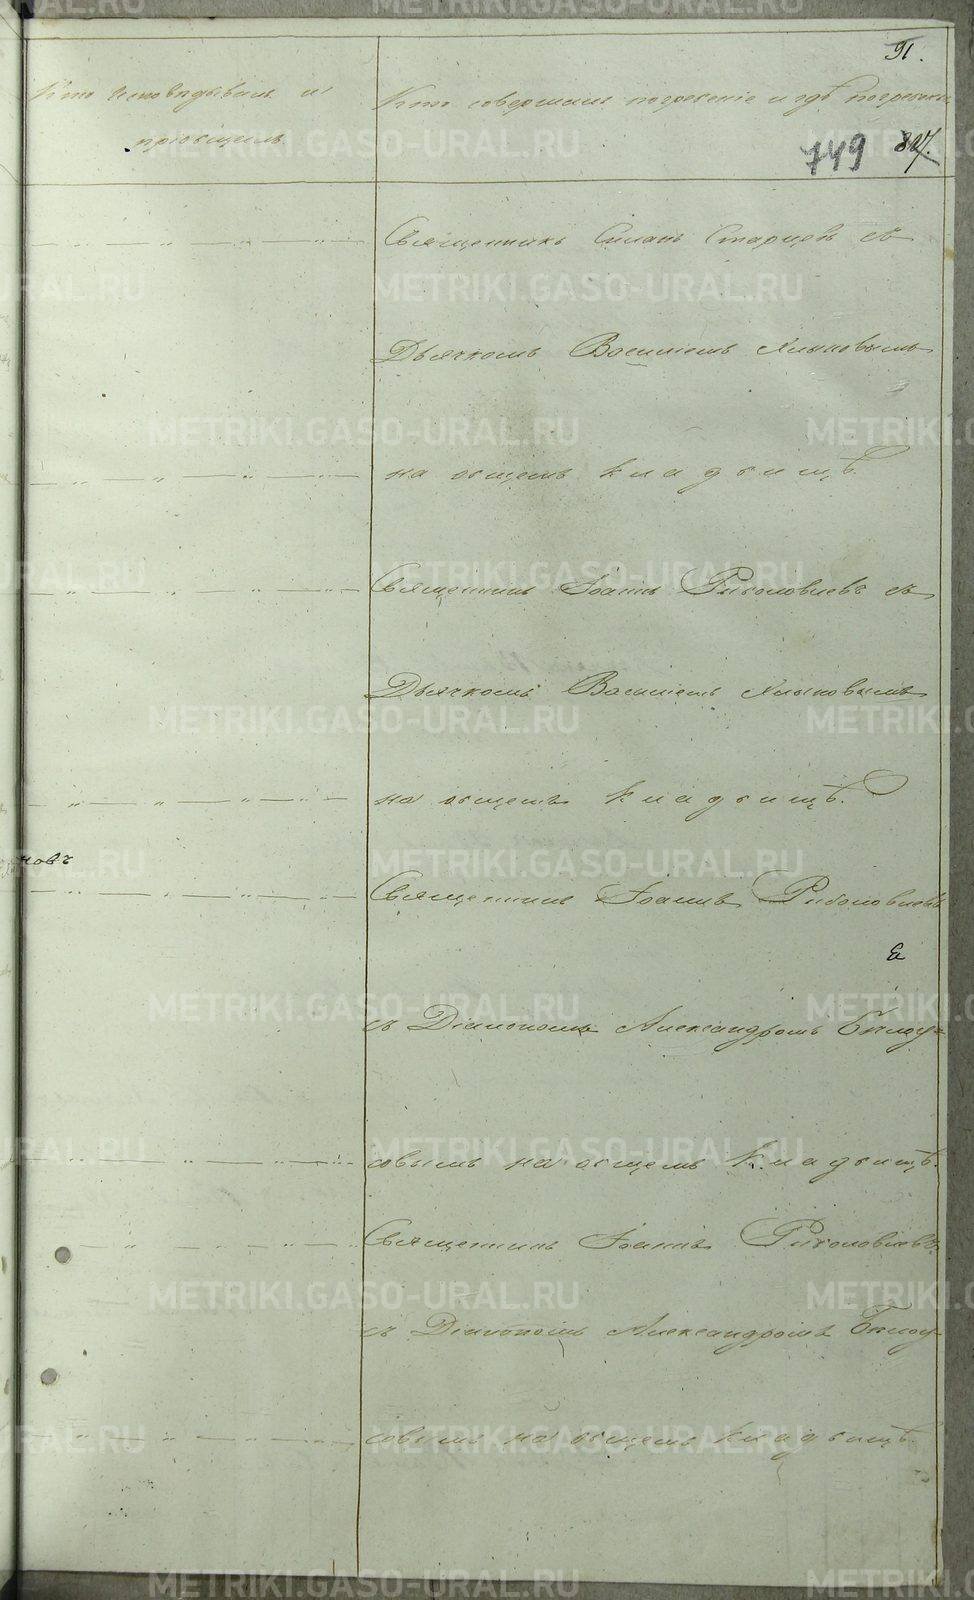 91.
Кто исповѣдывалъ и
пріобщалъ.
Кто совершалъ погребеніе и гдѣ погребены
749 827.
Священникъ Старцевъ съ
Дьячкомъ Василіемъ Хлыновымъ
на общемъ кладбищѣ.
Священникъ Іоаннъ съ
Дьячкомъ Василіемъ Хлыновымъ
на общемъ кладбищѣ.
новъ
Священникъ Іоаннъ
съ Діакономъ Александромъ Бѣлоу=
совымъ на общемъ кладбищѣ.
Священникъ Іоаннъ
съ Діакономъ Александромъ Бѣлоу-
совымъ на общемъ кладбищѣ.
METRIKI.GASO-URAL.RU